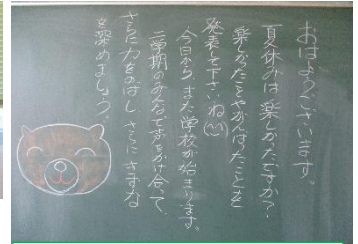 おはようございます。
夏休みは楽しかったですか？
楽しかったことやがんばったことを
発表して下さいね(^^)
今日からまた学校が始まります。
二学期のみんなで声をかけ合って、
さらに力をのばし さらにきずな
を深めましょう。